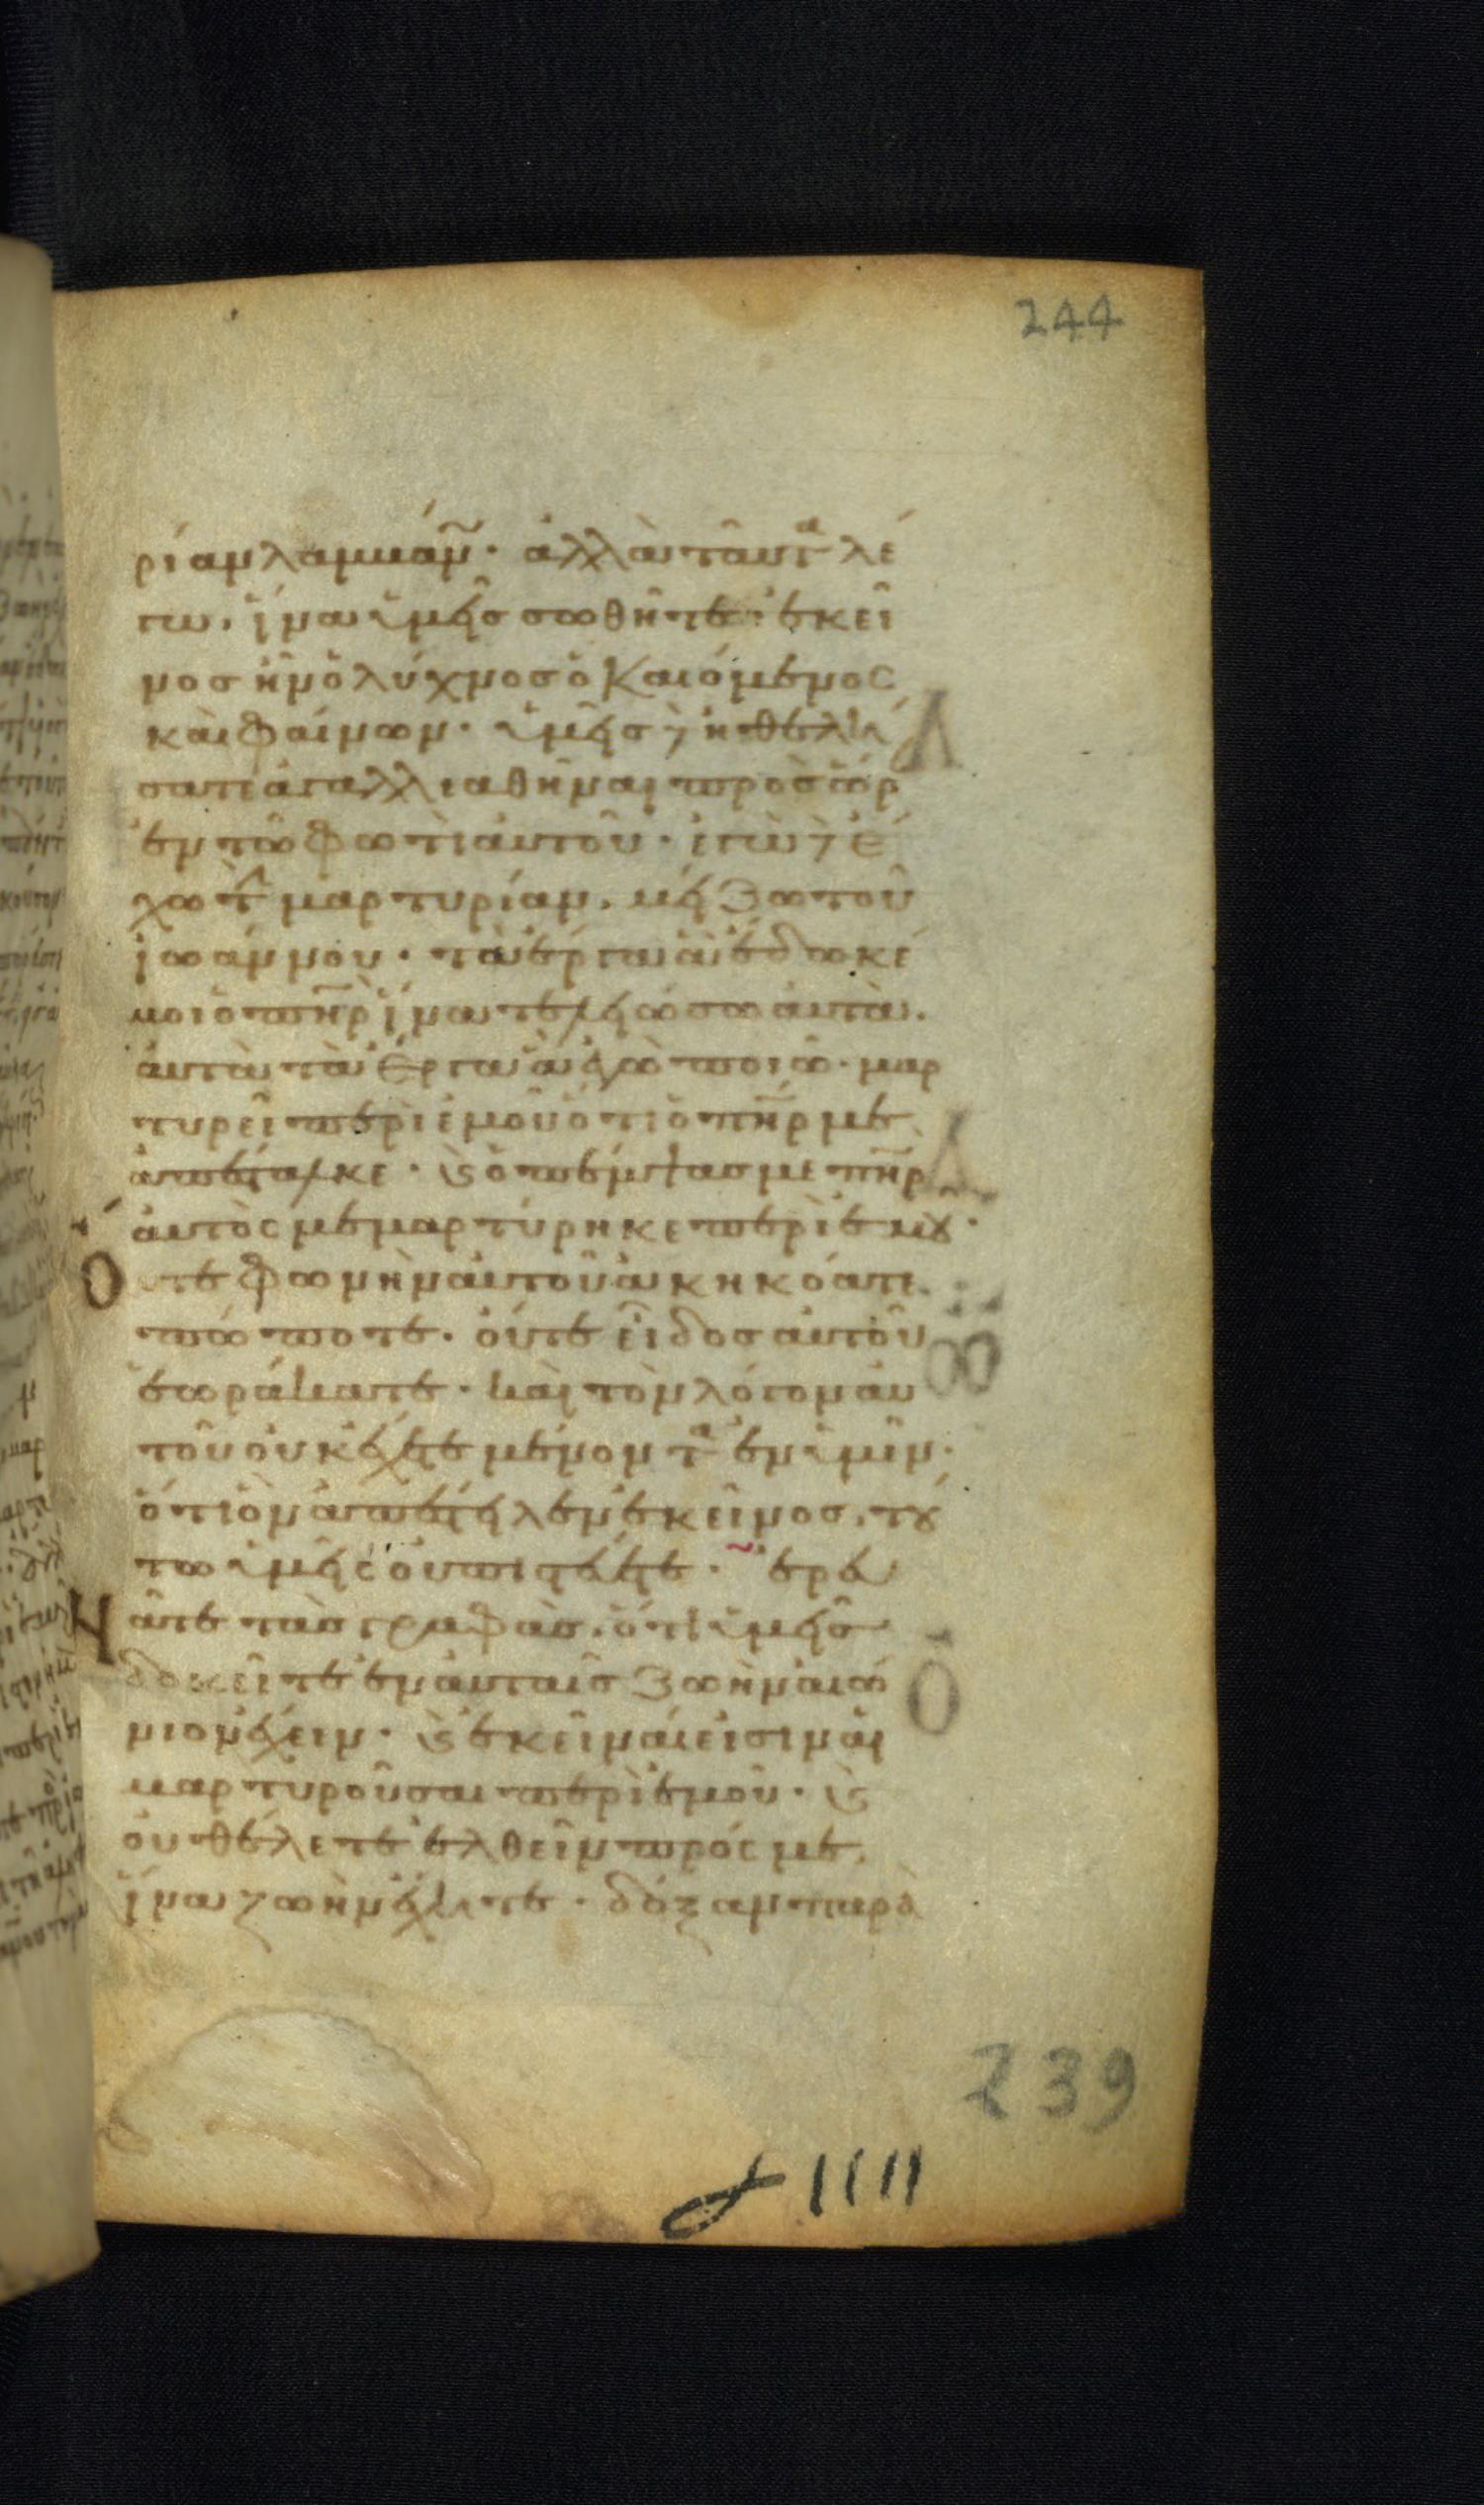 244
ρίαν λαμβάν· ἀλλὰ ταῦτα λέ
γω, ἵνα ὑμεῖς σωθῆτε· ἐκεῖ
νος ἦν ὁ λύχνος ὁ καιόμενος
καὶ φαίνων· ὑμεῖς δὲ ἠθελή
σατε ἀγαλλιαθῆναι πρὸς ὥρ
ἐν τῶ φωτὶ αὐτοῦ· ἐγὼ δὲ ἔ
χω τὴν μαρτυρίαν, μείζω τοῦ
ἰωάννου· τὰ ἔργα ἃ ἔδωκέ
μοι ὁ πηρ ἵνα τελειώσω αὐτὰ.
αὐτὰ τὰ ἔργα ἃ ἐγὼ ποιῶ· μαρ
τυρεῖ περὶ ἐμοῦ ὅτι ὁ πηρ με
ἀπέσταλκε· καὶ ὁ πέμψας με πηρ
αὐτὸς μεμαρτύρηκε περὶ ἐμοῦ·
Οὔτε φωνὴν αὐτοῦ ἀκηκόατε
πώποτε· οὔτε εἶδος αὐτοῦ
ἑωράκατε· καὶ τὸν λόγον αὐ
τοῦ οὐκ ἔχετε μένοντα ἐν ὑμῖν·
ὅτι ὃν ἀπέστειλεν ἐκεῖνος, τού
τω ὑμεῖς οὐ πιστεύετε· ἐρευ
νᾶτε τὰς γραφὰς, ὅτι ὑμεῖς
δοκεῖτε ἐν αὐταῖς ζωὴν αἰώ
νιον ἔχειν· καὶ ἐκεῖναί εἰσιν αἱ
μαρτυροῦσαι περὶ ἐμοῦ· καὶ
οὐ θέλετε ἐλθεῖν πρός με,
ἵνα ζωὴν ἔχητε· δόξαν παρὰ
239